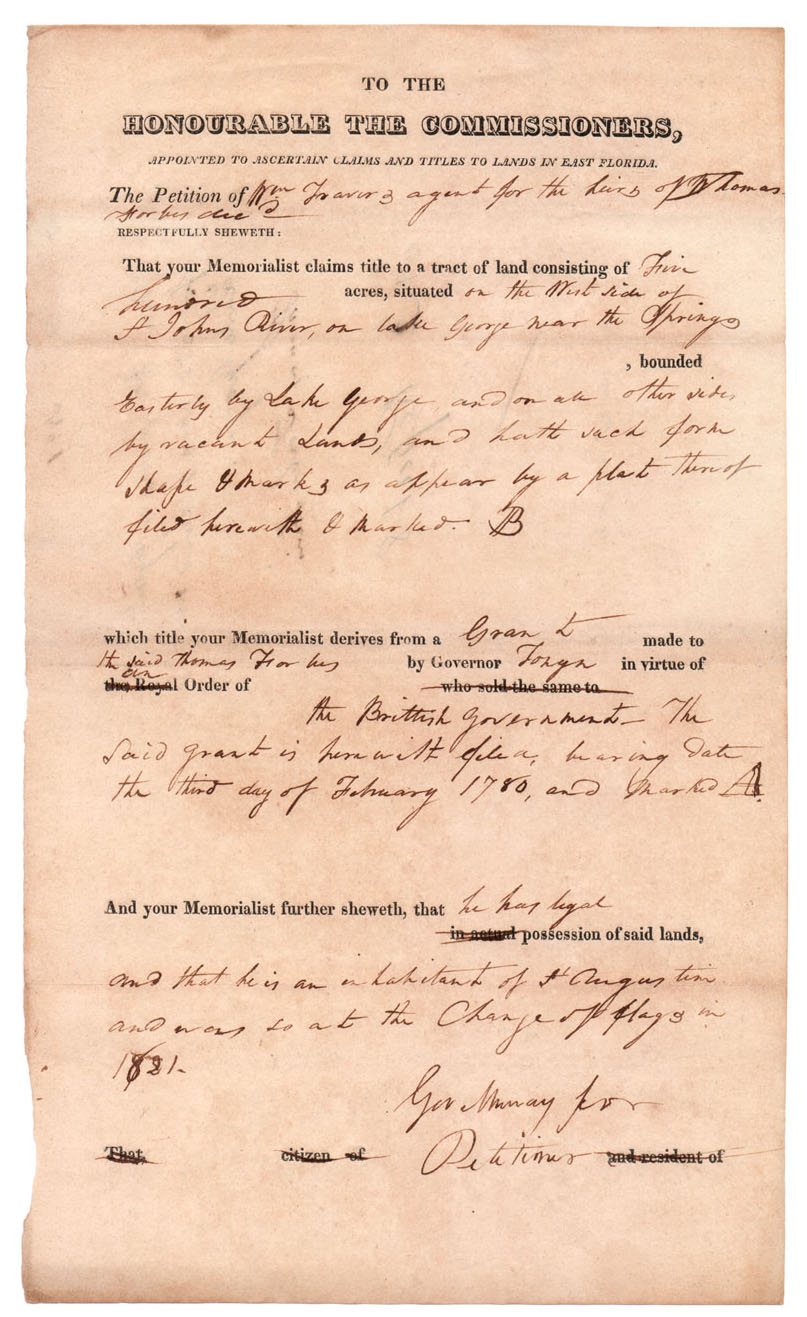 TO THE
HONOURABLE THE COMMISSIONERS,
APPOINTED TO ASCERTAIN CLAIMS AND TITLES TO LANDS IN EAST FLORIDA.
The Petition of Wm Travers agent for the heirs of Thomas
Forbes decd
RESPECTFULLY SHEWETH:
That your Memorialist claims title to a tract of land consisting of Five
hundred acres, situated on the West side of
St Johns River, on lake George near the Springs
, bounded
Easterly by Lake George and on all other sides
by vacant Lands, and hath such form
shape & marks as appear by a platt thereof
filed herewith & marked. B
which title your Memorialist derives from a Grant made to
the said Thomas Forbes by Governor Tonyn in virtue of
an
the Royal Order of who sold the same to
the Brittish Government - The
said grant is herewith filed, bearing date
the third day of February 1780, and Marked A.
And your Memorialist further sheweth, that he has legal
in actual possession of said lands,
and that he is an inhabitant of St Augustine
and was so at the Change of flags in
1821.
Geo Murray for
That, citizen of Petitioner and resident of